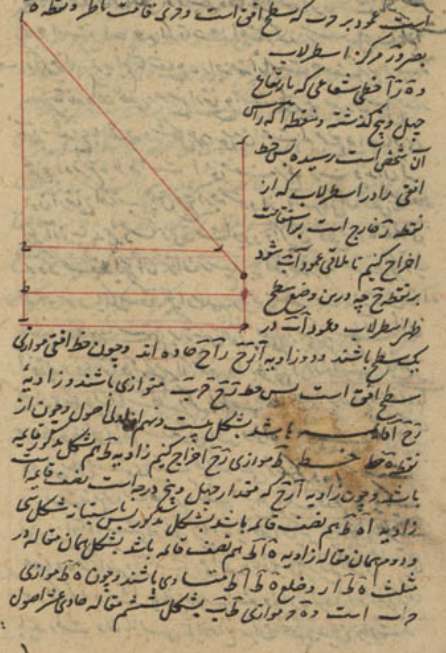 است عمود بر حرب که سطح افقی است و حری قامت ناظر و نقطه ه
بصر و ر مرکز اسطرلاب
و ه ر آ خطی شعاعی که بارتفاع
چهل و پنج گذشته و بنقطه آ که راس
آن شخص است رسیده پس خط
افقی را در اسطرلاب که از
نقطه ر خارج است بر استقامت
اخراج کنیم تا ملاقی عمود آب شود
بر نقطه ح چه درین وضع سطح
ظهر اسطرلاب و عمود آب در
یک سطح باشند و دو زاویه آرح رآح حاده اند و چون خط افقی موازی
سطح افقی است پس خط رح حرب متوازی باشند و زاویه
رح آ قائمه باشد بشکل بیست و نهم اولی اصول و چون از
نقطه ه خط ه ط موازی رح اخراج کنیم زاویه ط هم بشکل مذکور قائمه
باشد و چون زاویه آرح که مقدار چهل و پنج درجه است نصف قائمه است
زاویه آه ط هم نصف قائمه باشد بشکل مذکور پس باستبانه شکل سی
و دوم همان مقاله زاویه ه آط هم نصف قائمه باشد بشکل همان مقاله در
مثلث ه ط آ دو ضلع ه ط آط متساوی باشند و چون ه ط موازی
حرب است و ه ح موازی ط ب بشکل ششم مقاله حادی عشر اصول